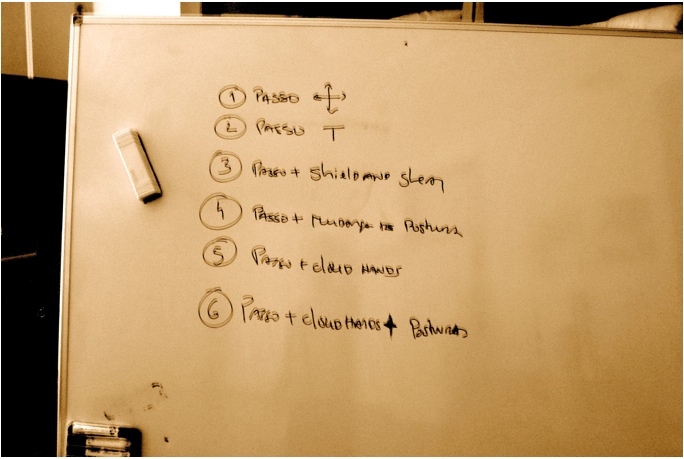 1 PASSO
2 PASSO T
3 PASSO + Shield AND
4 PASSO + Postura
5 PASSO + cloud HANDS
6 PASSO + cloud HANDS + Posturas